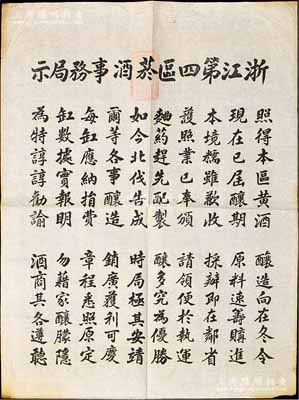 浙江第四區菸酒事務局示
照得本區黃酒　釀造向在冬令
現在已屆釀期　原料速籌購進
本境糯雖歉收　採辦即在鄰省
護照業已奉頒　請領便於執運
麯葯趕先配製　釀多究為優勝
如今北伐告成　時局極其安靖
爾等各事釀造　銷廣獲利可慶
每缸應納捐費　章程悉照原定
缸數據實報明　勿藉家釀朦隱
為特諄諄勸諭　酒商其各遵聽